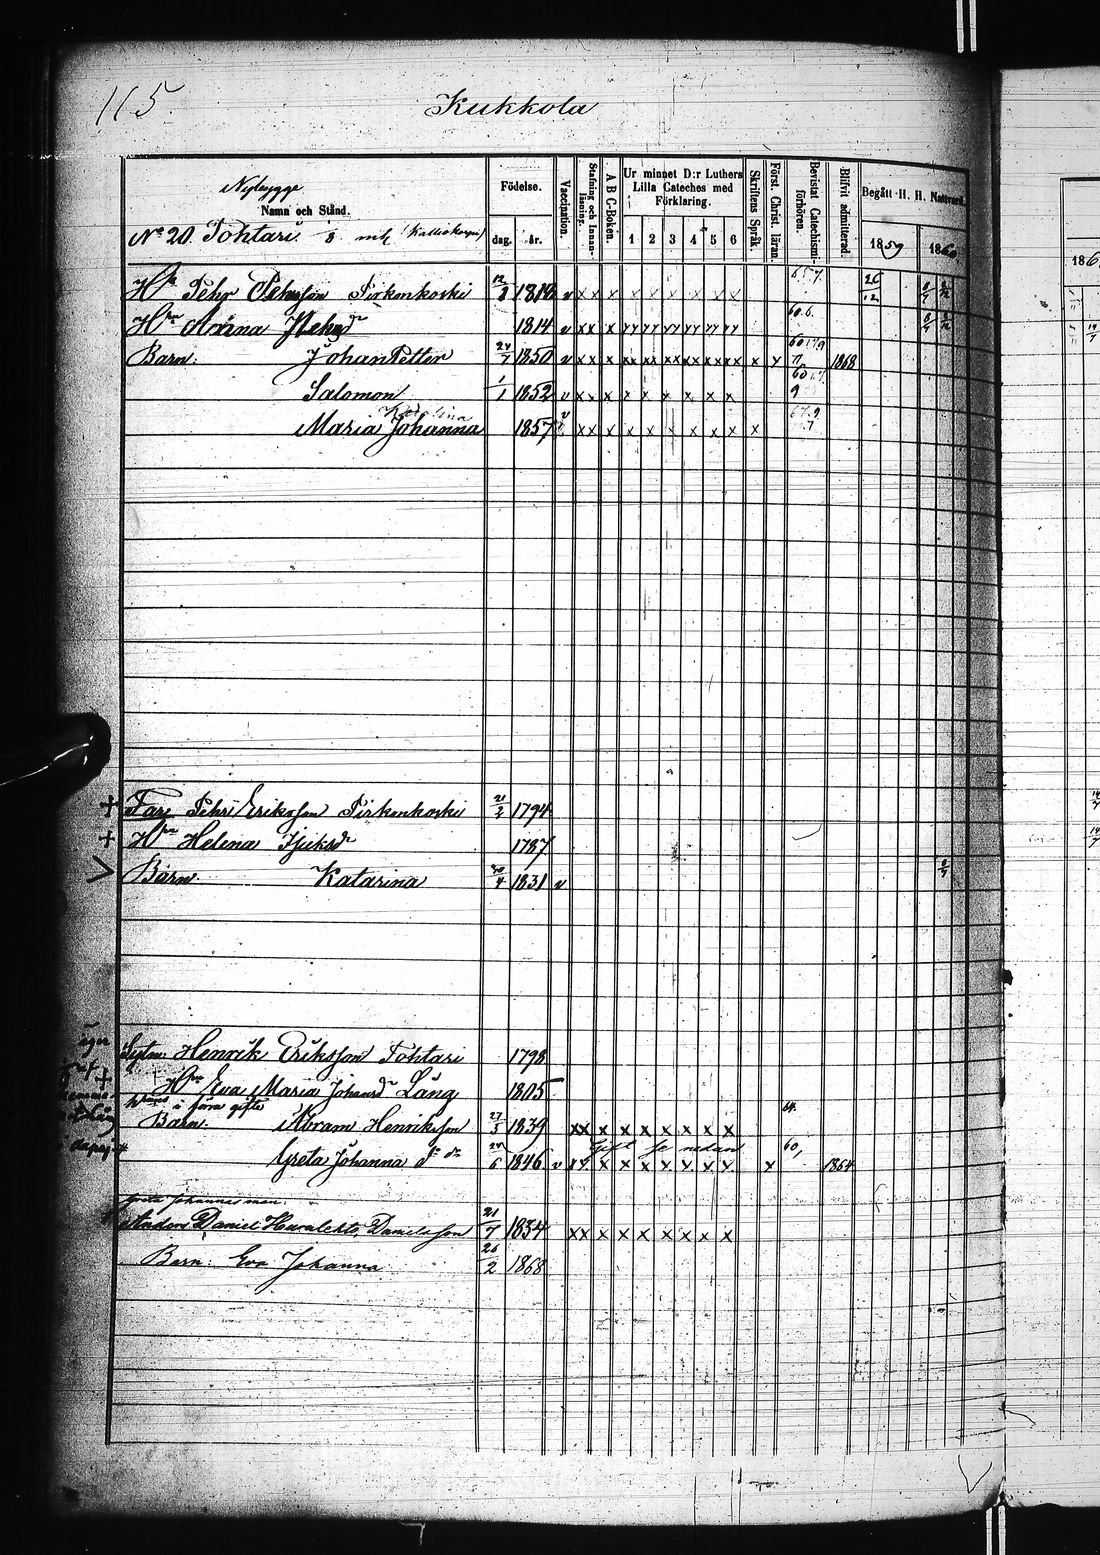 115.
Kukkola
Nybygge
Namn och Stånd.
Födelse.
dag. år.
Vaccination.
Stafning och Innanläsning.
A B C-Boken.
Ur minnet D:r Luthers Lilla Cateches med Förklaring.
1 2 3 4 5 6
Skriftens Språk.
Först. Christ. läran.
Bevistat Catechismiförhören.
Blifvit admitterad.
Begått H. H. Nattvard.
1859 1860
186
No 20. Tohtari 1/8 mtl
Hde Pehr Pehrsson Pirkonkoski 12/8 1818 v x x x x x x x x x 26/12
Hru Anna 1814 v x x x
Barn: Johan Petter 24/7 1850 v x x x xx xx xx xx xx xx x x 1868
Salomon 1/1 1852 v x x x x x x x x x
Karolina
Maria Johanna 1857 v x x x x x x x x x x
+ Far Pehr Eriksson Pirkonkoski 21/2 1794
+ Hru Helena 1787
V Barn. Katarina /4 1831 v
Sytn. Henrik Eriksson Tohtari 1798
+ Hru Eva Maria Johansdr Lång 1805
i förra gifte 64.
Barn. Abram Henriksson 27/5 1839 x x x x x x x x x
Gift se nedan
Greta Johanna do do 24/6 1846 v x x x x x x x x x x 60, 1864
Greta Johannas man
Anders Daniel Danielsson 21/7 1834 x x x x x x x x x
Barn: Eva Johanna 26/2 1868